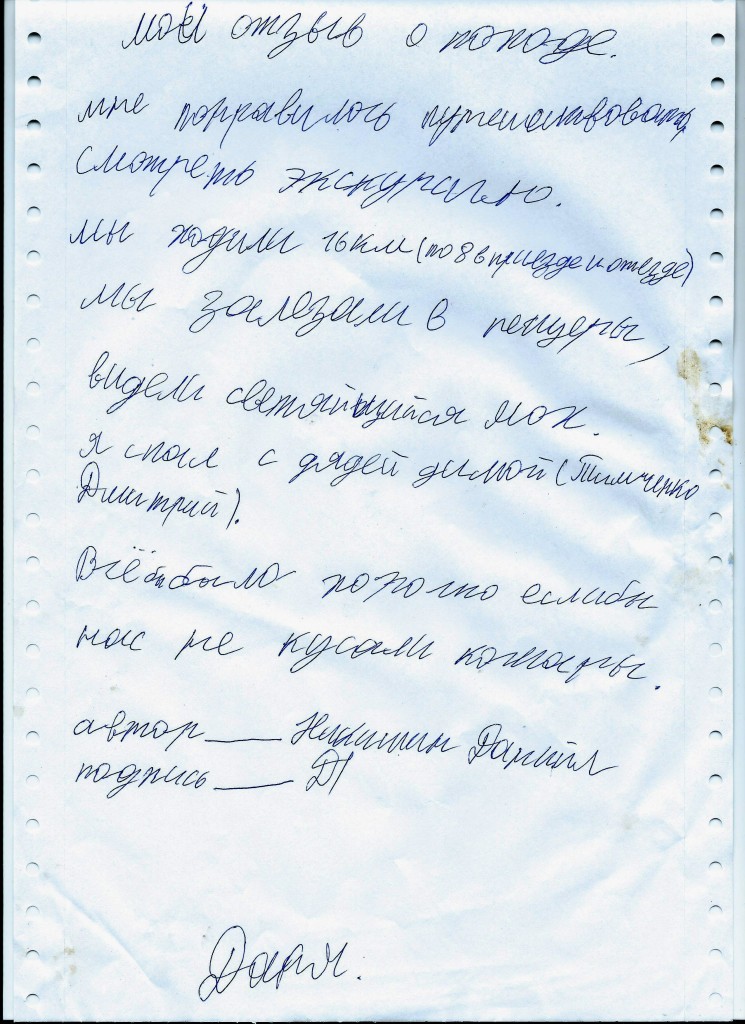 мой отзыв о походе.
мне понравилось путешествовать,
смотреть экскурсию.
мы ходили 16 км (по 8 в приезде и отезде)
мы залезали в пещеры,
видели светяйщийся мох.
я спал с дядей димой (Тимченко
Дмитрий).
Всё бы было хорошо еслибы
нас не кусали комары.
автор____ Никишин Даниил
подпись____ Д